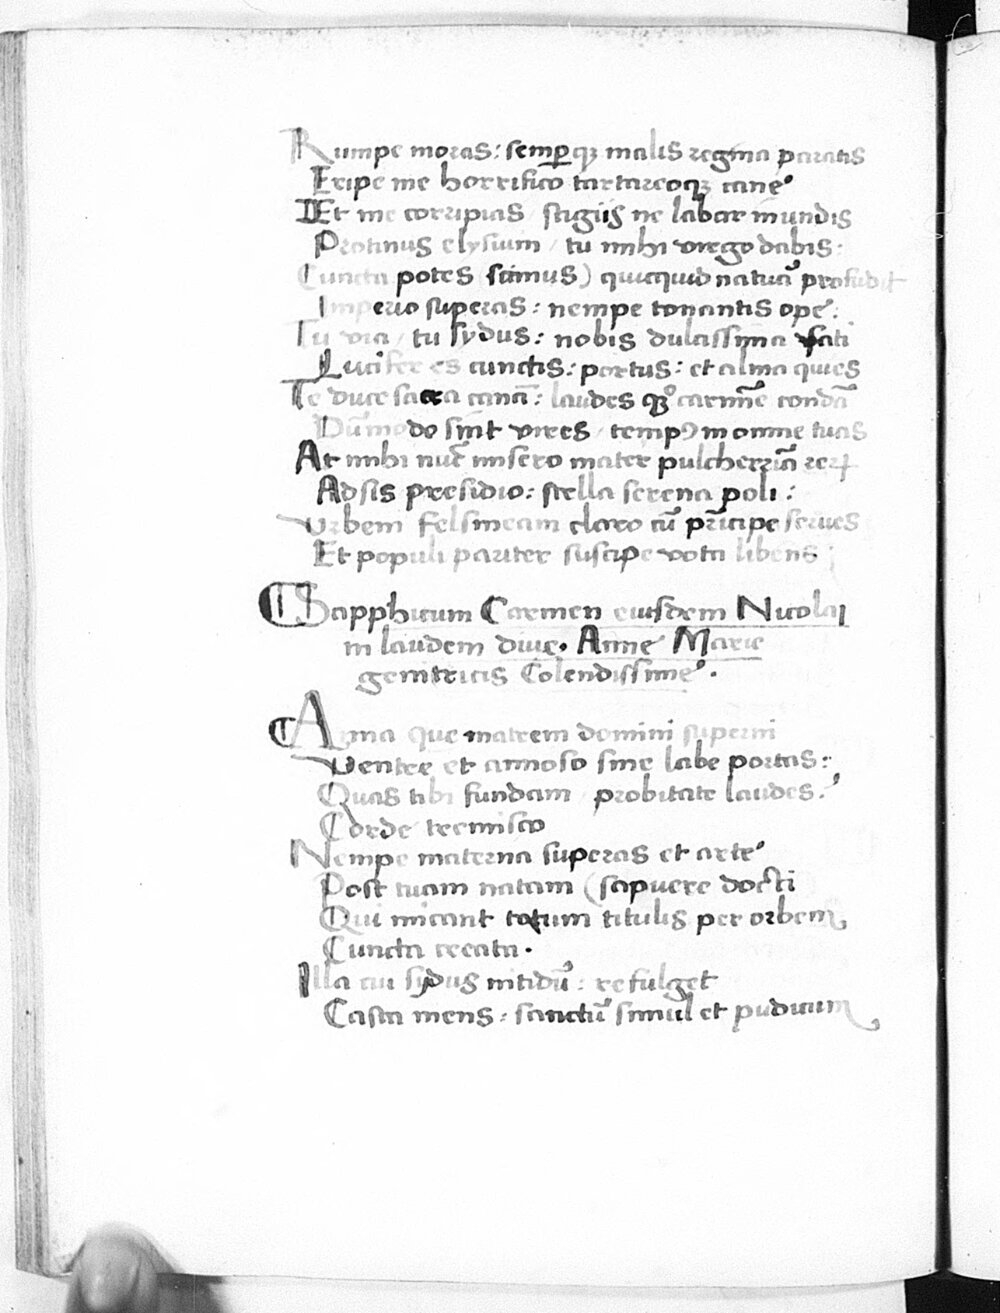 Rumpe moras: semꝑqꝫ malis regina paratis
Eripe me horrifico tartareoqꝫ cane
Et me corripias / stagiis ne labar mundis
Protinus elysium / tu mihi virego dabis:
Cuncta potes (scimus) quicquid natura profudit
Imperio superas: nempe tonantis ope.
Tu via / tu sydus: nobis dulcissima fati
Lucifer es cunctis: portus: et alma quies
Te duce sacra canā: laudes carmīe condā
Dūmodo sint vires / tempꝰ in omne tuas
At mihi nūc misero mater pulcherrīa reꝝ
Adsis presidio: stella serena poli:
Urbem felsineam claro cū prīcipe serves
Et populi pariter suscipe vota libens;
Sapphicum Carmen eiusdem Nicolai
in laudem dive. Anne Marie
genitricis Colendissime.
Anna que matrem domini superni
Ventre et annoso sine labe portas:
Quas tibi fundam / probitate laudes.
Corde tremisco
Nempe materna superas et arte
Post tuam natam (sapuere docti
Qui micant totum titulis per orbem
Cuncta creata.
Illa cui sydus nitidū: refulget
Casta mens: sanctū simul et pudicum